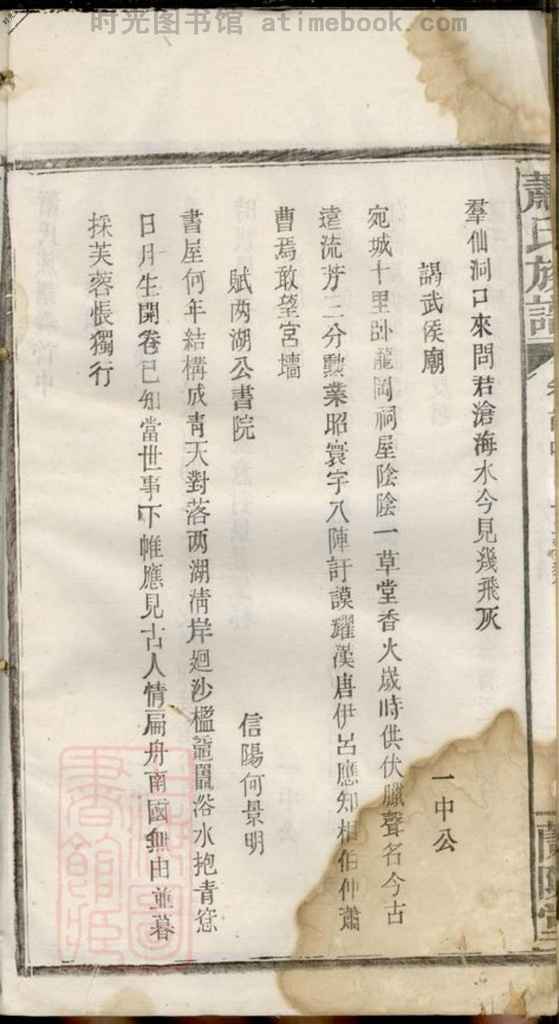 时光图书馆 atimebook.com
蕭氏族譜
羣仙洞口來問君滄海水今見幾飛灰
謁武侯廟
一中公
宛城十里卧龍岡祠屋陰陰一草堂香火歲時供伏臘聲名今古
遠流芳三分勲業昭寰宇八陣訏謨耀漢唐伊呂應知相伯仲蕭
曹焉敢望宮墻
賦两湖公書院
信陽何景明
書屋何年結構成青天對落两湖清岸廻沙檻龍圖浴水抱青
日月生開卷已知當世事下帷應見古人情扁舟南國無由並暮
採芙蓉悵獨行